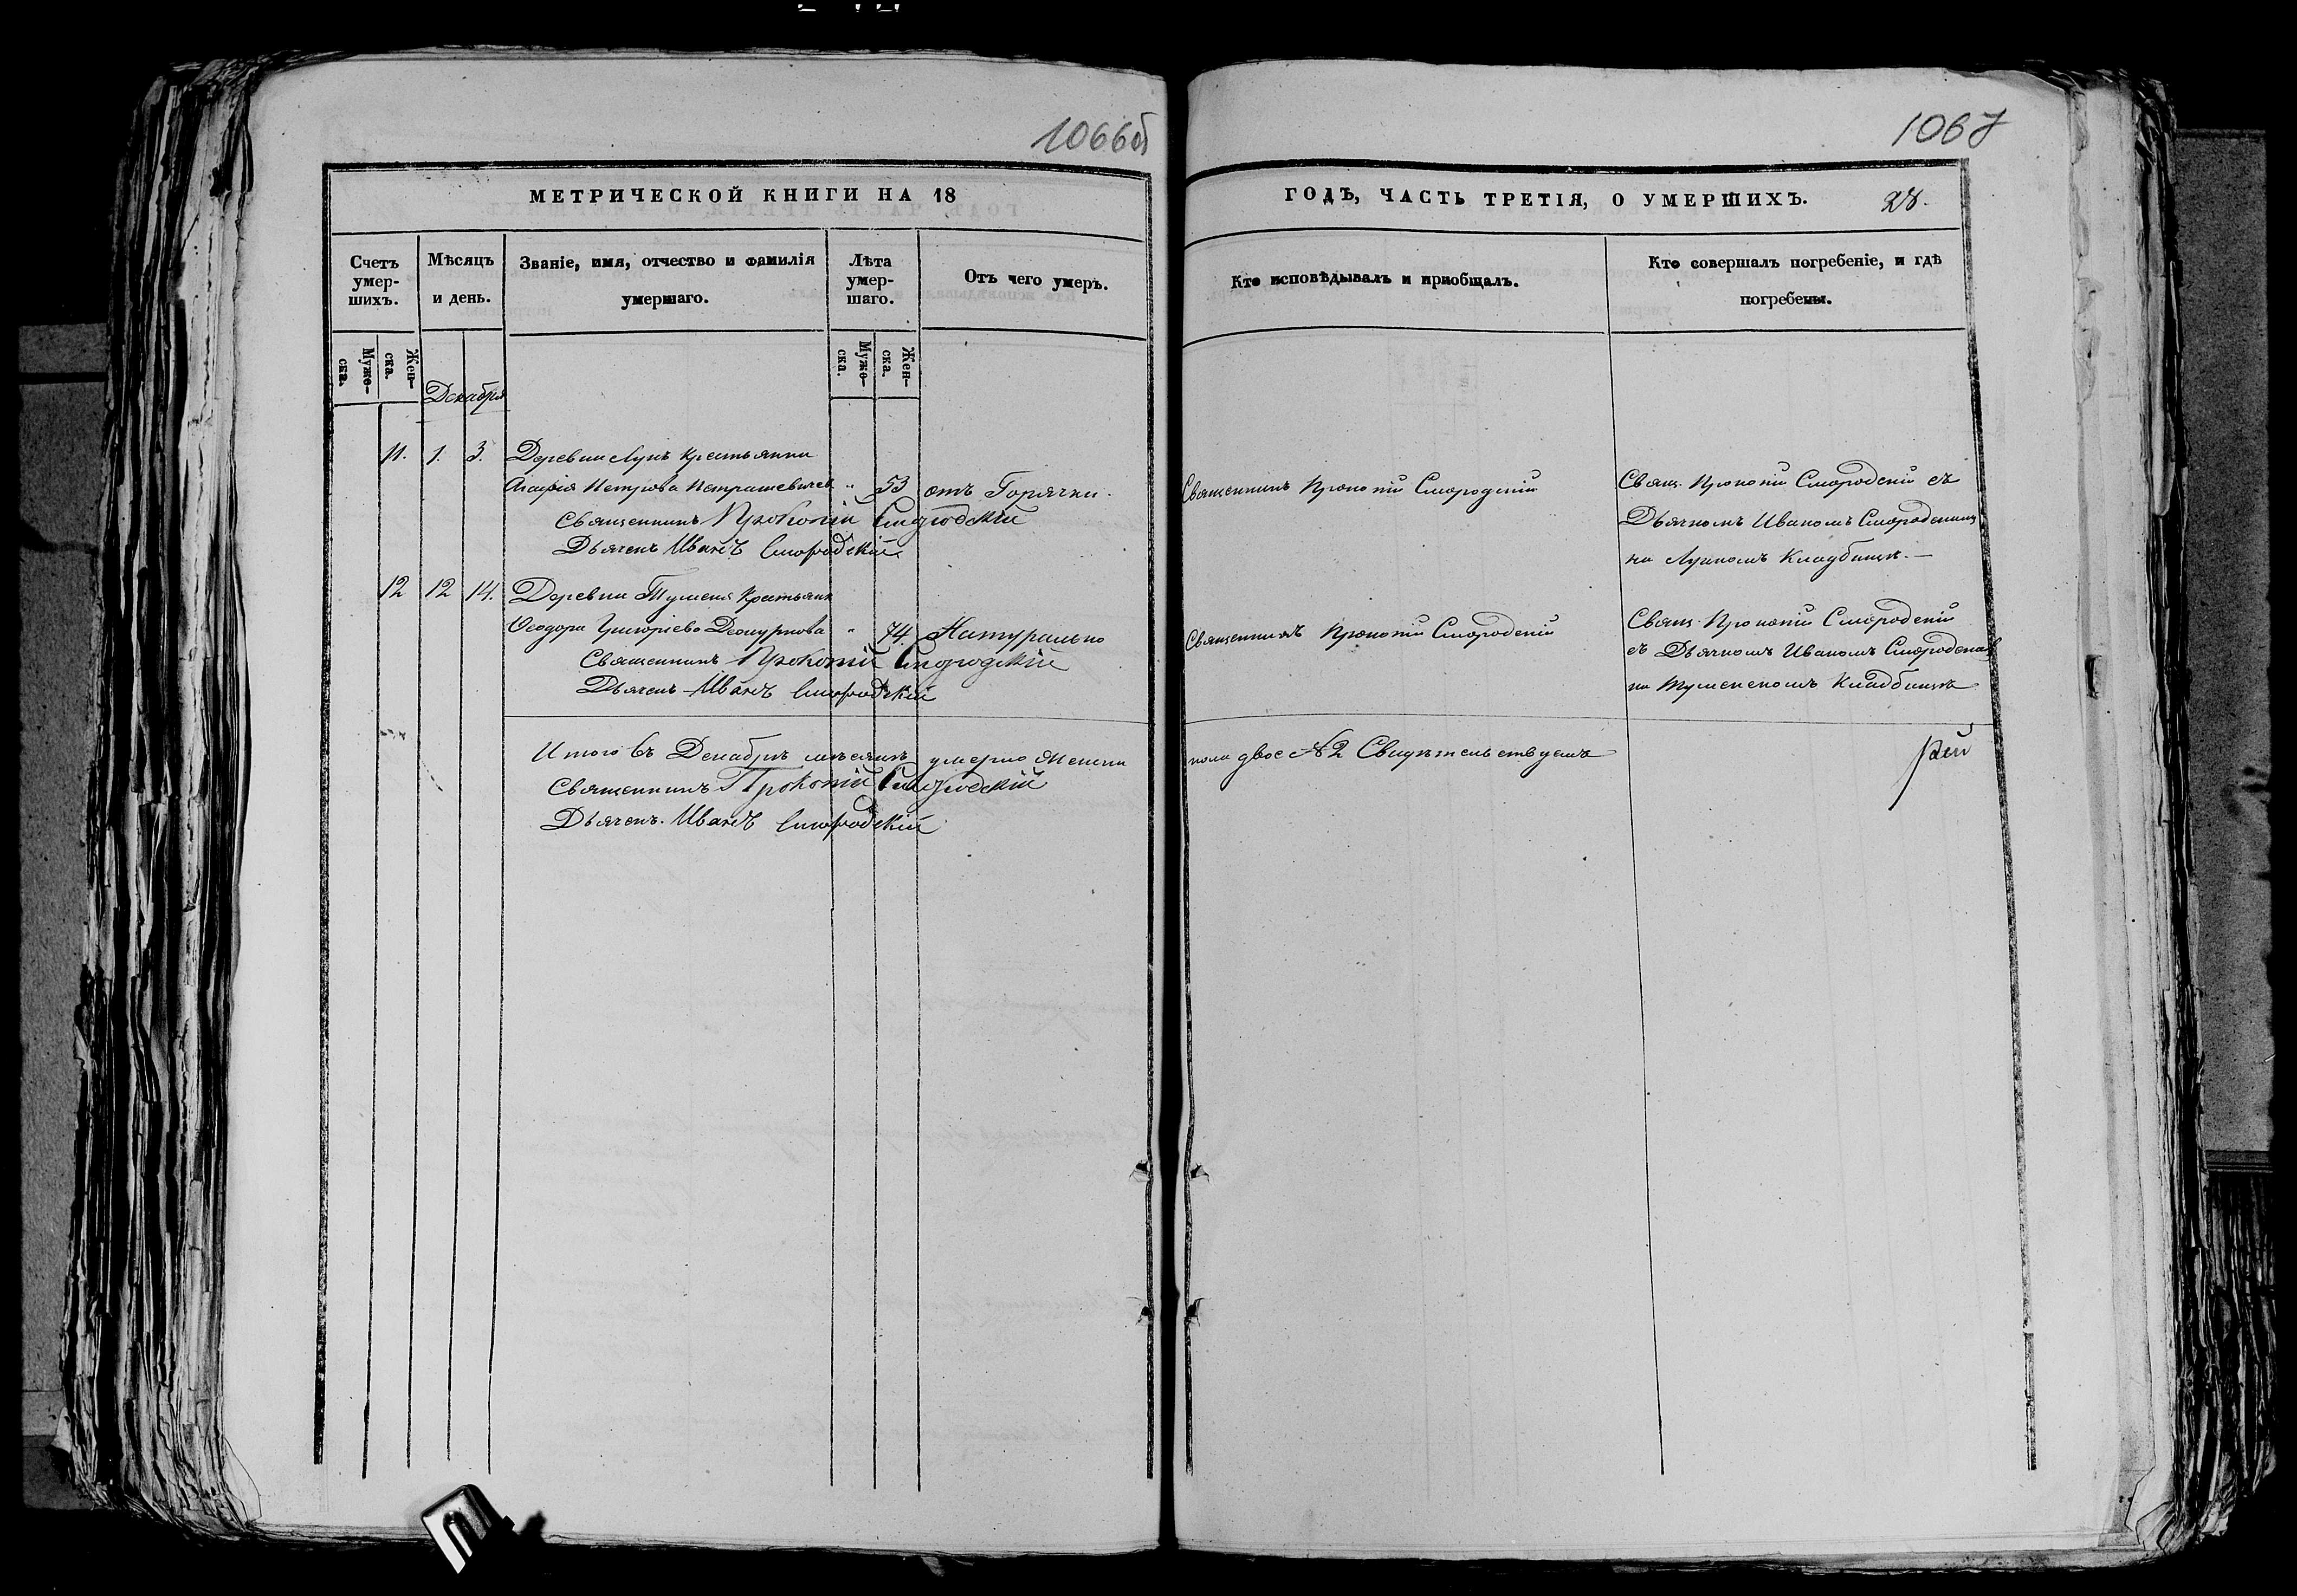 1066об
1067
МЕТРИЧЕСКОЙ КНИГИ НА 18
ГОДЪ, ЧАСТЬ ТРЕТІЯ, О УМЕРШИХЪ. 28.
Счетъ умер-
шихъ.
Мѣсяцъ
и день.
Званіе, имя, отчество и фамилія
умершаго.
Лѣта
умер-
шаго.
Отъ чего умеръ.
Кто исповѣдывалъ и пріобщалъ.
Кто совершалъ погребеніе, и гдѣ
погребены.
Мужс-
ска.
Жен-
ска.
Мужс-
ска.
Жен-
ска.
Декабря
11. 1. 3. Деревни Лунъ крестьянка
Петрова " 53 отъ Горячки.
Священникъ Прокопій Смородскій
Свящ. Прокопій Смородскій съ
Священникъ Прокопій Смородскій
Дьячкомъ Иваномъ Смородскимъ
Дьячекъ Иванъ Смородскій
на кладбищѣ.—
12 12 14. Деревни Туменя крестьянк
Ѳеодора Григоріева " 74. Натурально
Священникъ Прокопій Смородскій
Свящ. Прокопій Смородскій
Священникъ Прокопій Смородскій
съ Дьячкомъ Иваномъ
Дьячекъ Иванъ Смородскій
на Туменскомъ кладбищѣ
Итого въ Декабрѣ мѣсяцѣ умерло женска пола двое № 2 Свидѣтельствуемъ
Священникъ Прокопій Смородскій
Дьячекъ Иванъ Смородскій